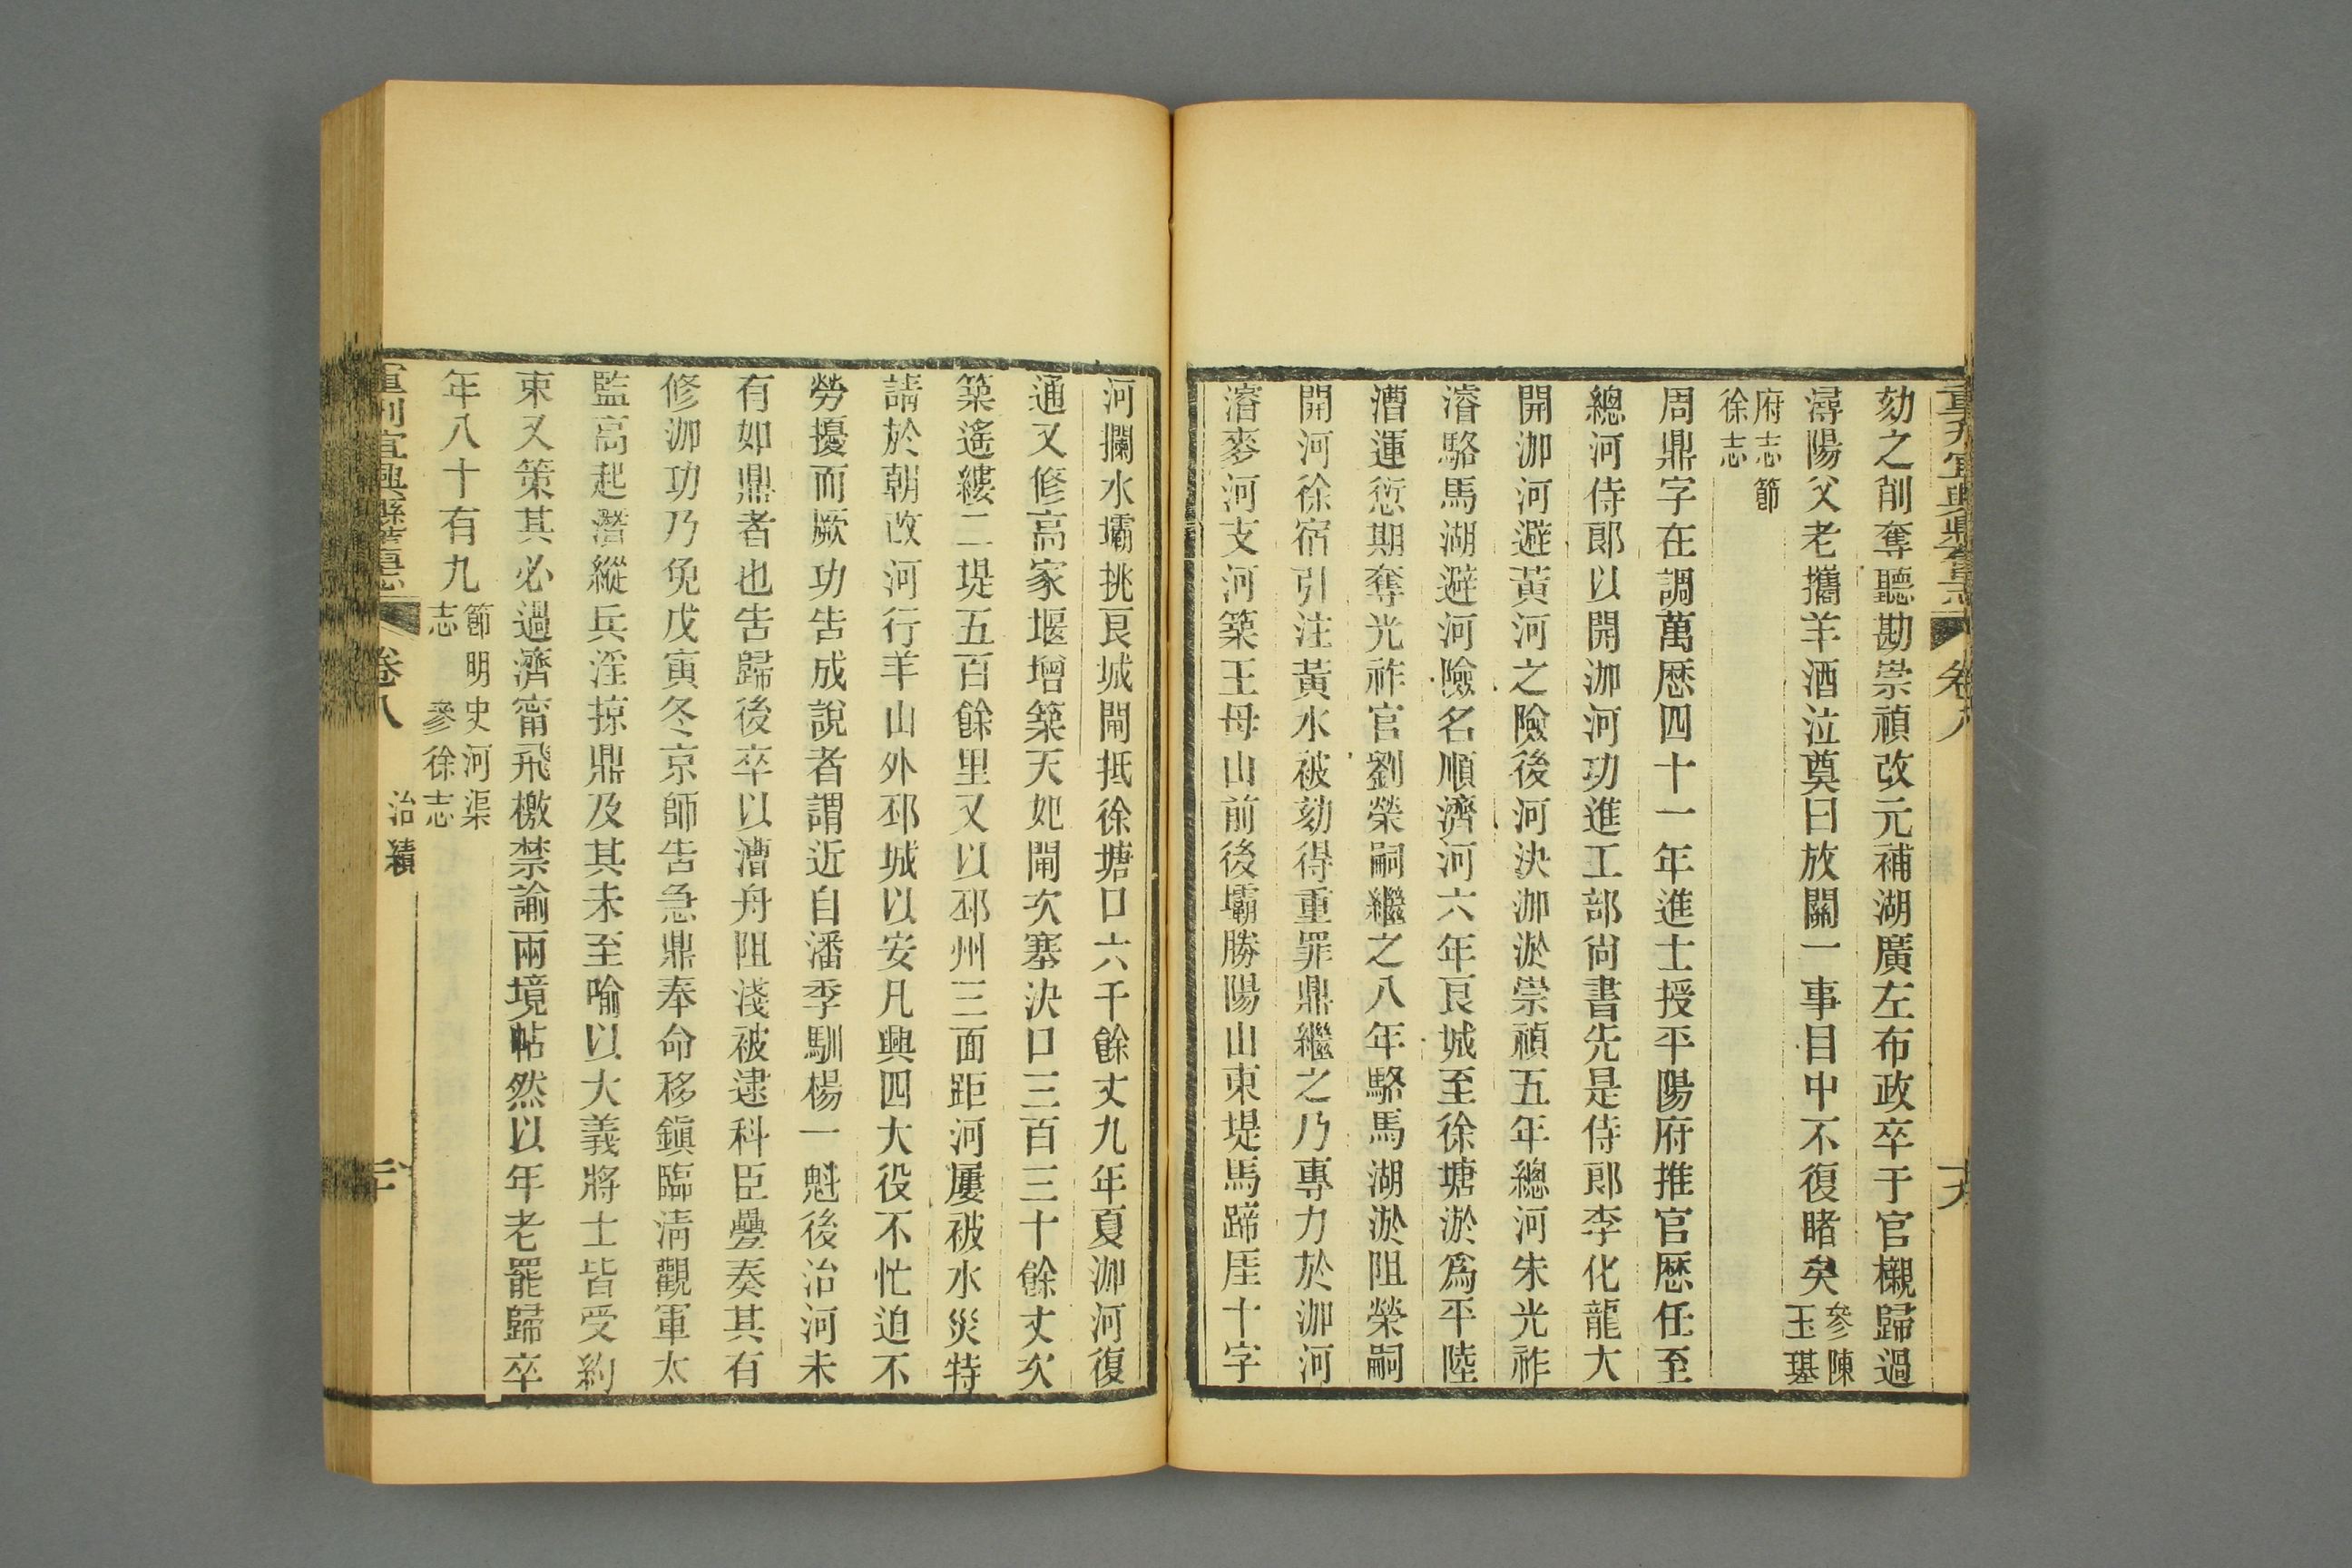 劾之削奪聽勘崇禎改元補湖廣左布政卒于官櫬歸過
潯陽父老攜羊酒泣奠曰放關一事目中不復睹矣參陳玉璂
府志節徐志
周鼎字在調萬厯四十一年進士授平陽府推官厯任至
總河侍郎以開泇河功進工部尚書先是侍郎李化龍大
開泇河避黃河之險後河決泇淤崇禎五年總河朱光祚
濬駱馬湖避河險名順濟河六年艮城至徐塘淤爲平陸
漕運愆期奪光祚官劉榮嗣繼之八年駱馬湖淤阻榮嗣
開河徐宿引注黃水被劾得重罪鼎繼之乃專力於泇河
濬麥河支河築王母山前後壩勝陽山東堤馬蹄厓十字
河攔水壩挑艮城閘抵徐塘口六千餘丈九年夏泇河復
通又修高家堰增築天妃閘次塞決口三百三十餘丈次
築遙縷二堤五百餘里又以邳州三面距河屢被水災特
請於朝改河行羊山外邳城以安凡興四大役不忙迫不
勞擾而厥功告成說者謂近自潘季馴楊一魁後治河未
有如鼎者也告歸後卒以漕舟阻淺被逮科臣疊奏其有
修泇功乃免戊寅冬京師告急鼎奉命移鎭臨淸觀軍太
監高起潛縱兵淫掠鼎及其未至喻以大義將士皆受約
束又策其必過濟甯飛檄禁諭兩境帖然以年老罷歸卒
年八十有九節明史河渠志參徐志
重刊宜興縣舊志 卷八 治績